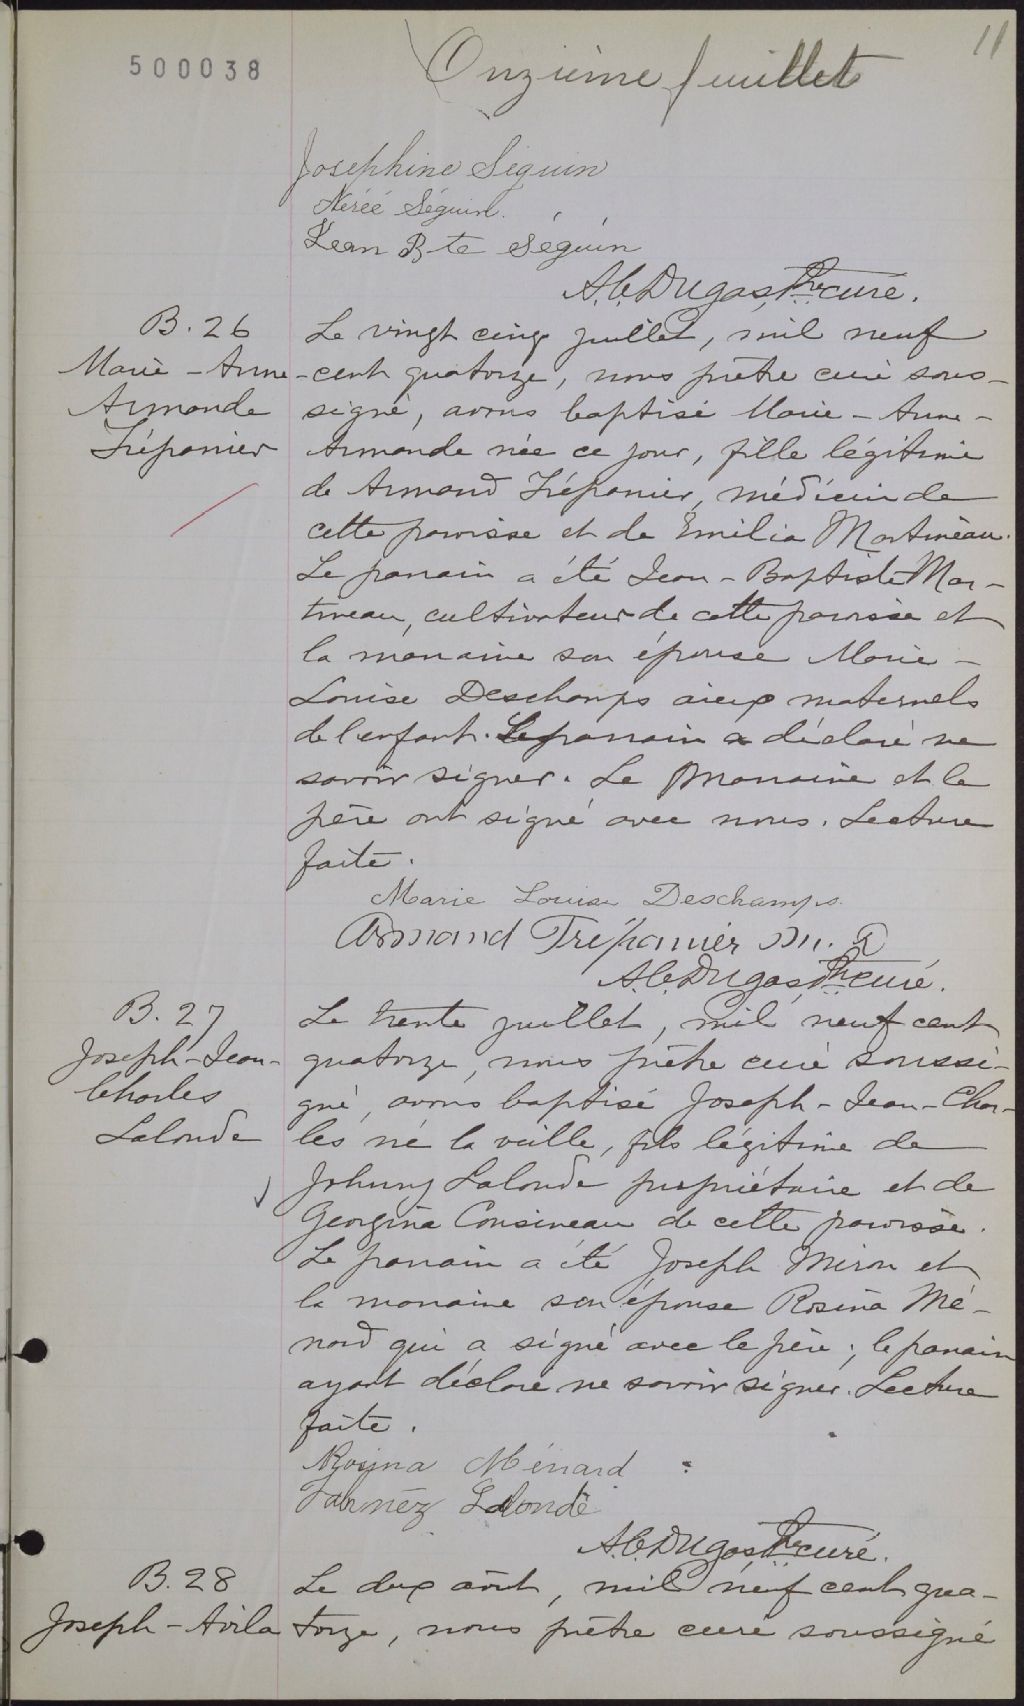 11
500038
Onzième feuillet
Josephine Séguin
Néréé Séguin.
Jean Bte Séguin
A.C. Dugas, Ptre curé.
B. 26
Marie-Anne
Armande
Trépanier
Le vingt cinq juillet, mil neuf
cent quatorze, nous prêtre curé sous-
signé, avons baptisé Marie-Anne-
Armande née ce jour, fille légitime
de Armand Trépanier, médécin de
cette paroisse et de Emilia Martineau.
Le parrain a été Jean-Baptiste Mar-
tineau, cultivateur de cette paroisse et
la marraine son épouse Marie-
Louise Deschamps aieux maternels
de l'enfant. Le parrain a déclaré ne
savoir signer. Le marraine et le
père ont signé avec nous. Lecture
faite.
Marie Louise Deschamps.
Armand Trépanier M. D
A.C. Dugas, Ptre curé.
B. 27
Joseph-Jean-
Charles
Lalonde
Le trente juillet, mil neuf cent
quatorze, nous prêtre curé soussi-
gné, avons baptisé Joseph-Jean-Char-
les né la veille, fils légitime de
Johnny Lalonde propriétaire et de
Georgina Cousineau de cette paroisse.
Le parrain a été Joseph Miron et
la marraine son épouse Rosina Mé-
nard qui a signé avec le père; le parrain
ayant déclaré ne savoir signer. Lecture
faite.
Rosina Ménard
Lalonde
A.C. Dugas Ptre curé.
B. 28
Joseph-Avila
Le deux août, mil neuf cent qua-
torze, nous prêtre curé soussigné